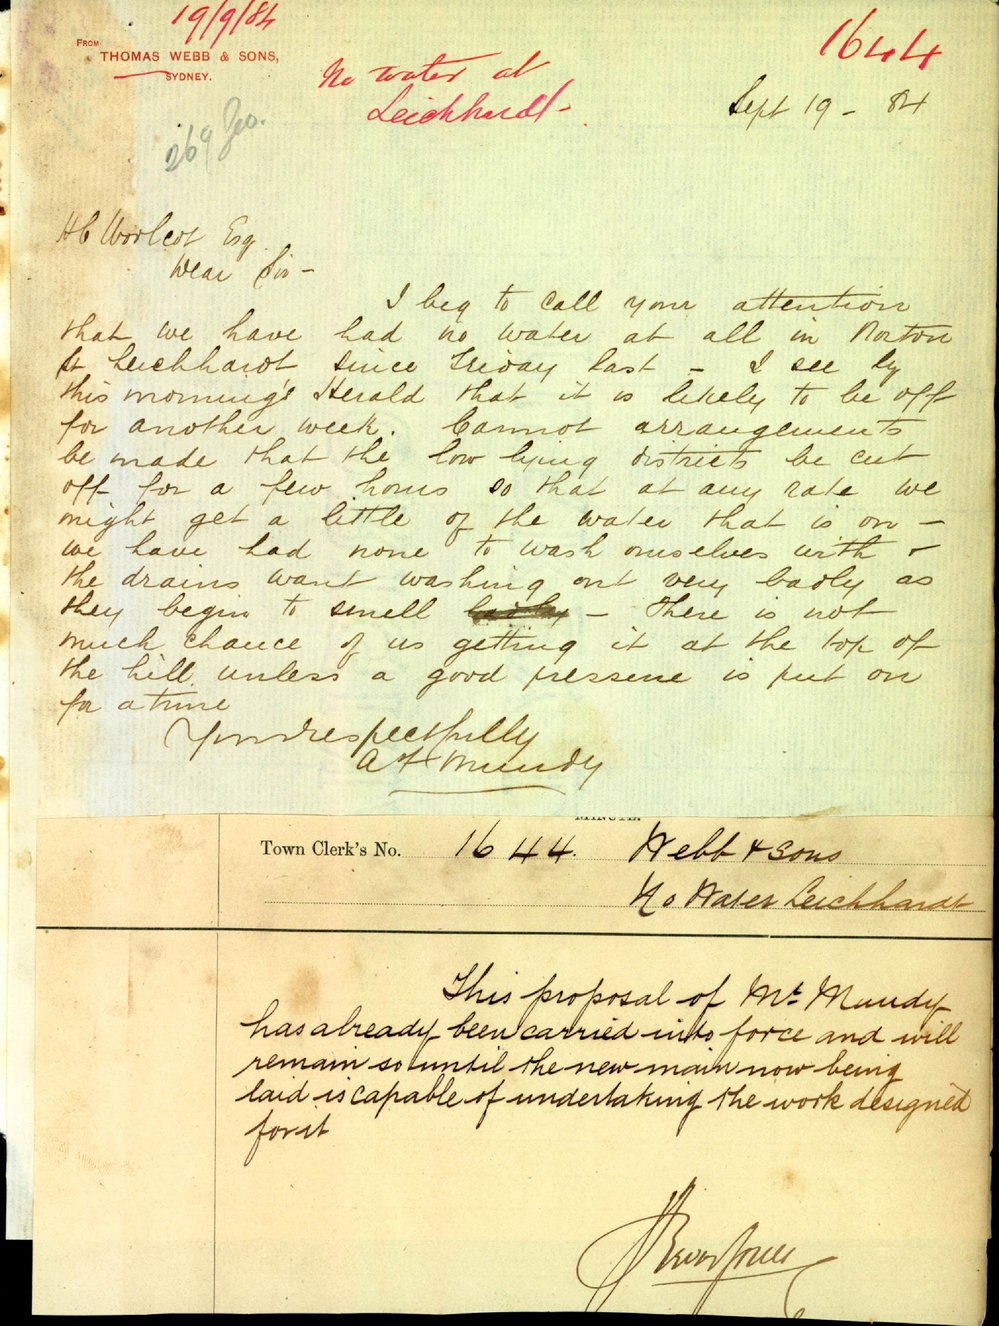 19/9/84
1644
FROM
THOMAS WEBB & SONS,
SYDNEY.
No water at
Leichhardt
Sept 19 - 84
269
H C Woolcot Esq
Dear Sir -
I beg to call your attention
that we have had no water at all in Norton
St Leichhardt since Friday last - I see by
this morning's Herald that it is likely to be off
for another week. Cannot arrangements
be made that the low lying districts be cut
off for a few hours so that at any rate we
might get a little of the water that is on -
we have had none to wash ourselves with &
the drains want washing out very badly as
they begin to smell - There is not
much chance of us getting it at the top of
the hill unless a good pressure is put on
for a time
Yours respectfully
A Mundy
MINUTE.
Town Clerk's No. 1644. Webb & Sons
No Water Leichhardt
This proposal of Mr. Mundy
has already been carried into force and will
remain so until the new main now being
laid is capable of undertaking the work designed
for it